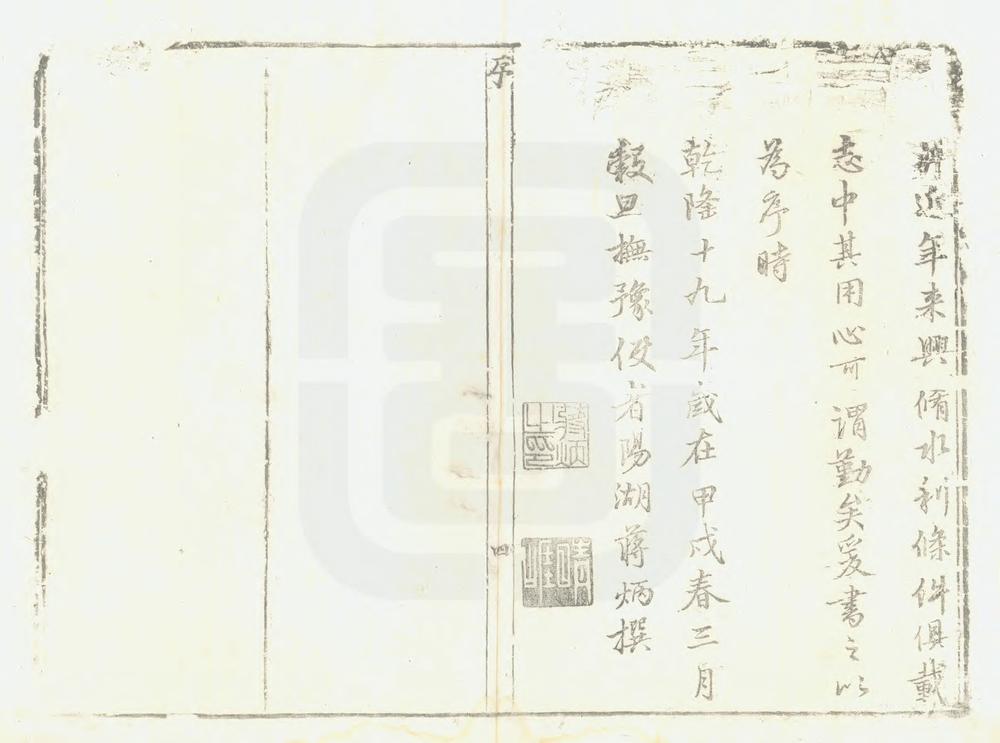 近年來興脩水利條件俱載
志中其用心可謂勤矣爰書之以
為序時
乾隆十九年歲在甲戌春三月
穀旦撫豫使者陽湖蔣炳撰
蔣炳之印
序
四